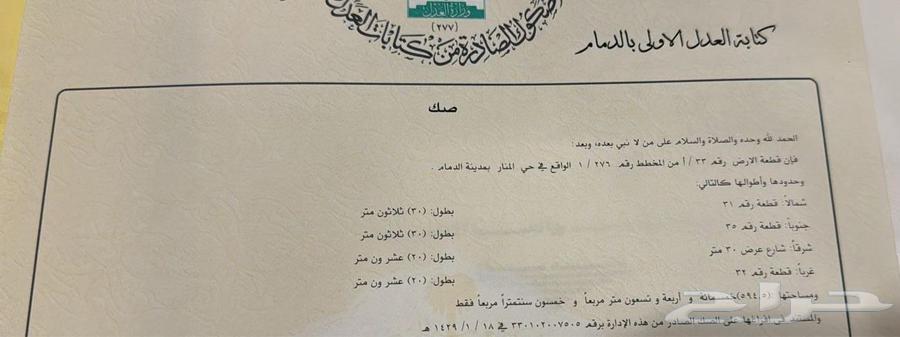 وزارة العدل
(٢٧٧)
صكوك الصادرة من كتابات العدل
كتابة العدل الأولى بالدمام
صك
الحمد لله وحده والصلاة والسلام على من لا نبي بعده، وبعد:
فإن قطعة الارض رقم ٣٣ / أ من المخطط رقم ٢٧٦ / ١ الواقع في حي المنار بمدينة الدمام .
وحدودها وأطوالها كالتالي:
شمالاً: قطعة رقم ٣١ بطول: (٣٠) ثلاثون متر
جنوباً: قطعة رقم ٣٥ بطول: (٣٠) ثلاثون متر
شرقاً: شارع عرض ٣٠ متر بطول: (٢٠) عشر ون متر
غرباً: قطعة رقم ٣٢ بطول: (٢٠) عشر ون متر
ومساحتها :(٥٩٤.٥)خمسمائة و أربعة و تسعون متر مربعاً و خمسون سنتمتراً مربعاً فقط
والمستند في افراغها على الصك الصادر من هذه الإدارة برقم ٣٣٠١٠٢٠٠٧٥٠٥ في ١٨ / ١ / ١٤٢٩ هـ
حراج